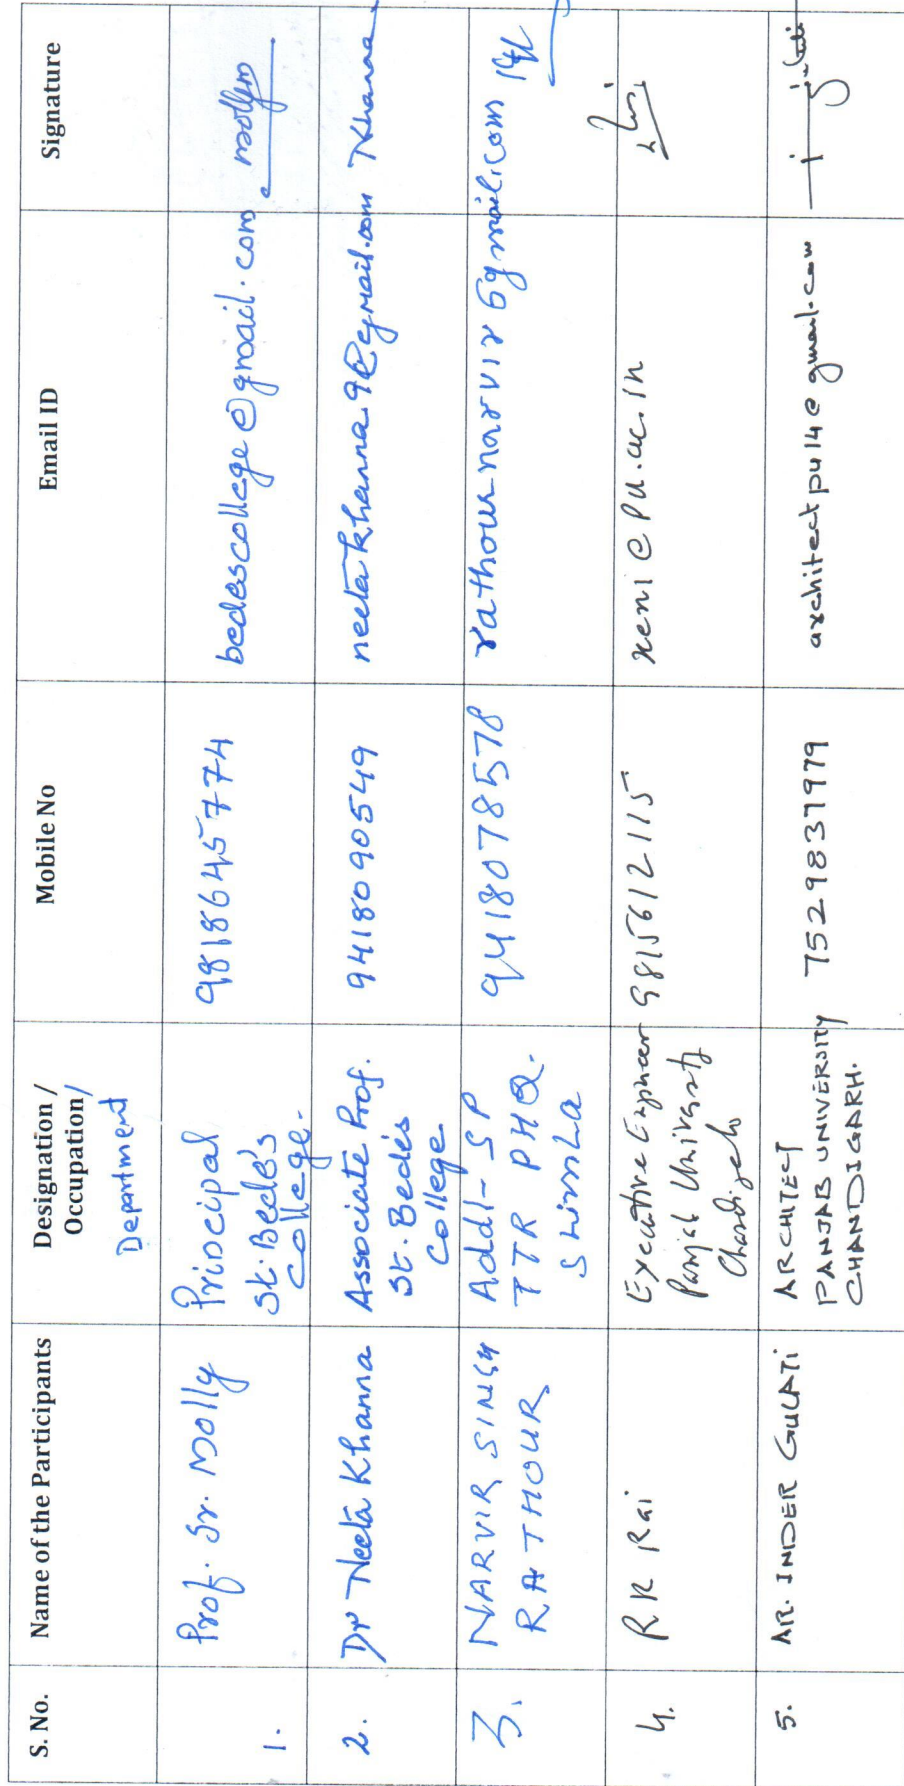 S. No. Name of the Participants Designation / Occupation/ Department Mobile No Email ID Signature
1. Prof. Sr. Molly Principal St. Bede's College. 9818645774 bedescollege@gmail.com molly
2. Dr Neeta Khanna Associate Prof. St. Bede's College 9418090549 neetakhanna9@gmail.com NKhanna
3. NARVIR SINGH RATHOUR Addl- SP TTR PHQ. Shimla 9418078578 rathournarvir6gmail.com
4. RK Rai Executive Engineer Panjab University Chandigarh 9815612115 xen1@pu.ac.in
5. AR. INDER GULATI ARCHITECT PANJAB UNIVERSITY CHANDIGARH. 7529837979 architectpu14@gmail.com